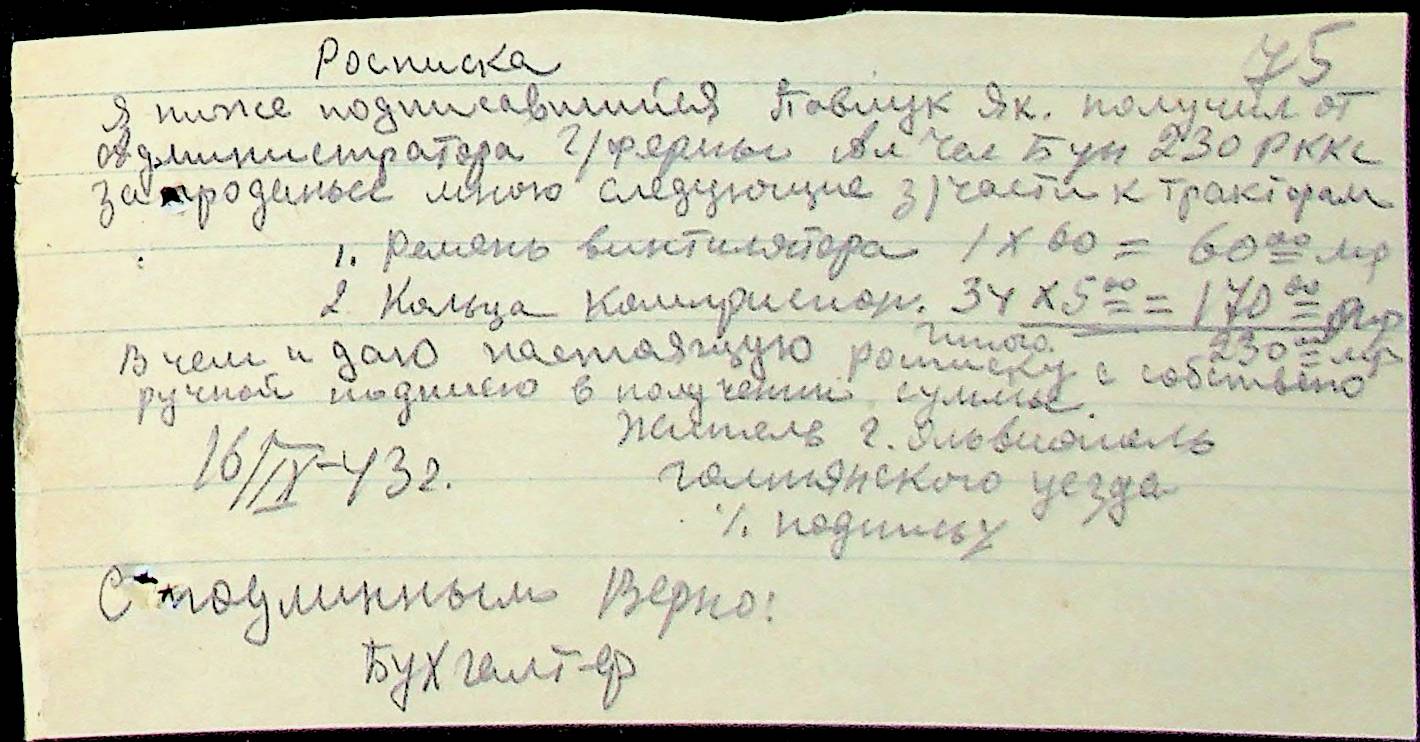 75
Росписка
Я ниже подписавшийся Повлук Як. получил от
Администратора г/фермы Бун 230 РККС
за проданые мною следующие з/части к тракторам
1. Ремень винтилятора 1 х 60 = 60 00 мр
2. Кольца комприспор. 34 х 5 00 = 170 00 мр
Итого. 230 = мр
В чем и даю настоящую росписку с собствено
ручной подписю в получении суммы.
Житель г. Ольвиополь
16/IX-43г. голтянского уезда
/. подпись/
С подлинным Верно:
Бухгалт-ер